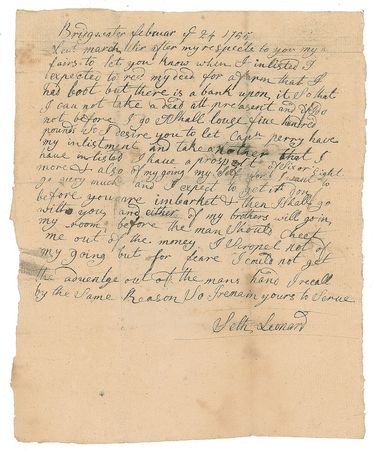 Bridgwater februar y 24 1795
Leut march Sir after my respects to you my a
fairs to let you know when I inlisted I
expected to res my deed for a farm that I
had boot but there is a bank upon it So that
I can not take a dead att preasent and
not before I go I Shall louse five hundred
pounds So I desire you to let Capn perry have
my inlistment and take another that I
have inlisted I have a prospect of Six or Eight
more & also of my going my Self for I want to
go very much and I expect to get it don
before you are imbarket & then I shall go
with you and either of my brothers will go in
my room before the man Should Cheet
me out of the money I Propel not of
my going but for feare I could not get
the advantge out of the mans hand I recall
by the Same Reason So I remain yours to Serve
Seth Leonard